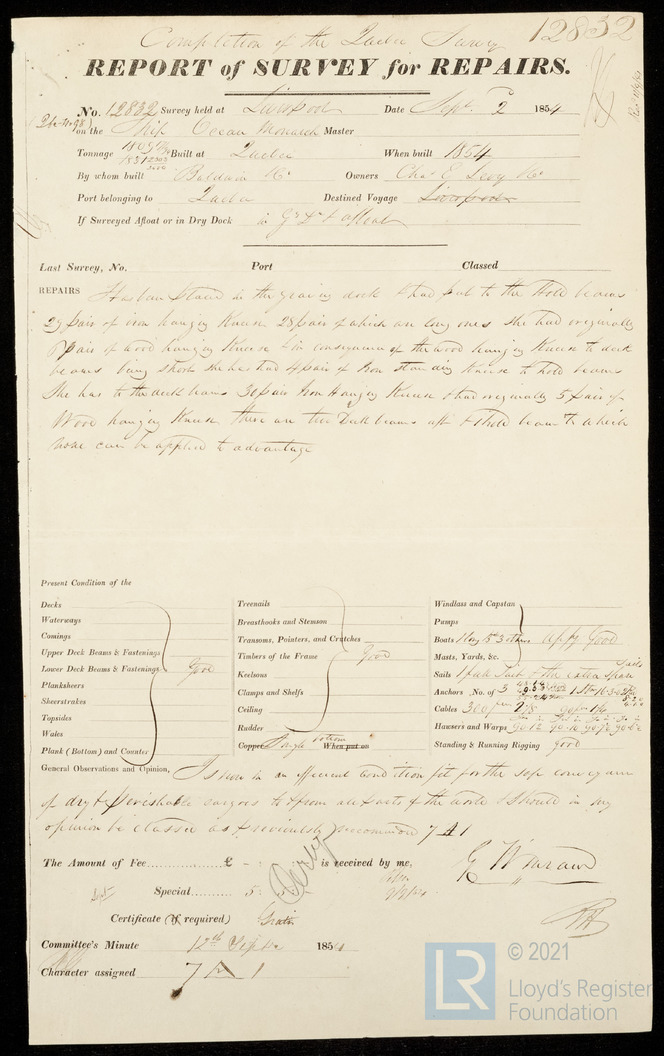 Completion of the Quebec Survey 12832
REPORT of SURVEY for REPAIRS.
No. 12832 Survey held at Liverpool Date Sept. 2 1854
on the Ship Ocean Monarch Master
Tonnage Built at Quebec When built 1854
By whom built Baldwin & Co Owners Chas E Levey & Co
Port belonging to Quebec Destined Voyage Liverpool
If Surveyed Afloat or in Dry Dock in Gr Dk & afloat
Last Survey, No. Port Classed
REPAIRS Has been placed in the graving dock & had put to the Hold beams
29 pair of iron hanging Knees 28 pair of which are long ones she had originally
pair of wood hanging Knees & in consequence of the wood hanging Knees to deck
beams being short she has had 4 pair of Iron standing Knees to hold beams
She has to the deck beams 30 pair Iron Hanging Knees & had originally 5 pair of
Wood hanging Knees there are two Deck beams aft & 1 hold beam to which
none can be applied to advantage
Present Condition of the
Decks
Waterways
Comings
Upper Deck Beams & Fastenings
Lower Deck Beams & Fastenings Good
Planksheers
Sheerstrakes
Topsides
Wales
Plank (Bottom) and Counter
Treenails
Breasthooks and Stemson
Transoms, Pointers, and Crutches
Timbers of the Frame Good
Keelsons
Clamps and Shelfs
Ceiling
Rudder
Copper Single bottom When put on
Windlass and Capstan
Pumps
Boats 1 Long Bt 3 others appy Good
Masts, Yards, &c.
Sails 1 full Suit & other extra Spare Sails
Anchors, No. of 3
Cables 300
Hawsers and Warps
Standing & Running Rigging good
General Observations and Opinion, Is now in an efficient condition fit for the safe conveyance
of dry & perishable cargoes to & from all parts of the world & should in my
opinion be classed as previously recommend 7 A 1
The Amount of Fee £ - : is received by me,
Special 5 : 5
Certificate (if required) Gratis
Committee's Minute 12th Septr 1854
Character assigned 7 A 1
LR © 2021
Lloyd's Register
Foundation